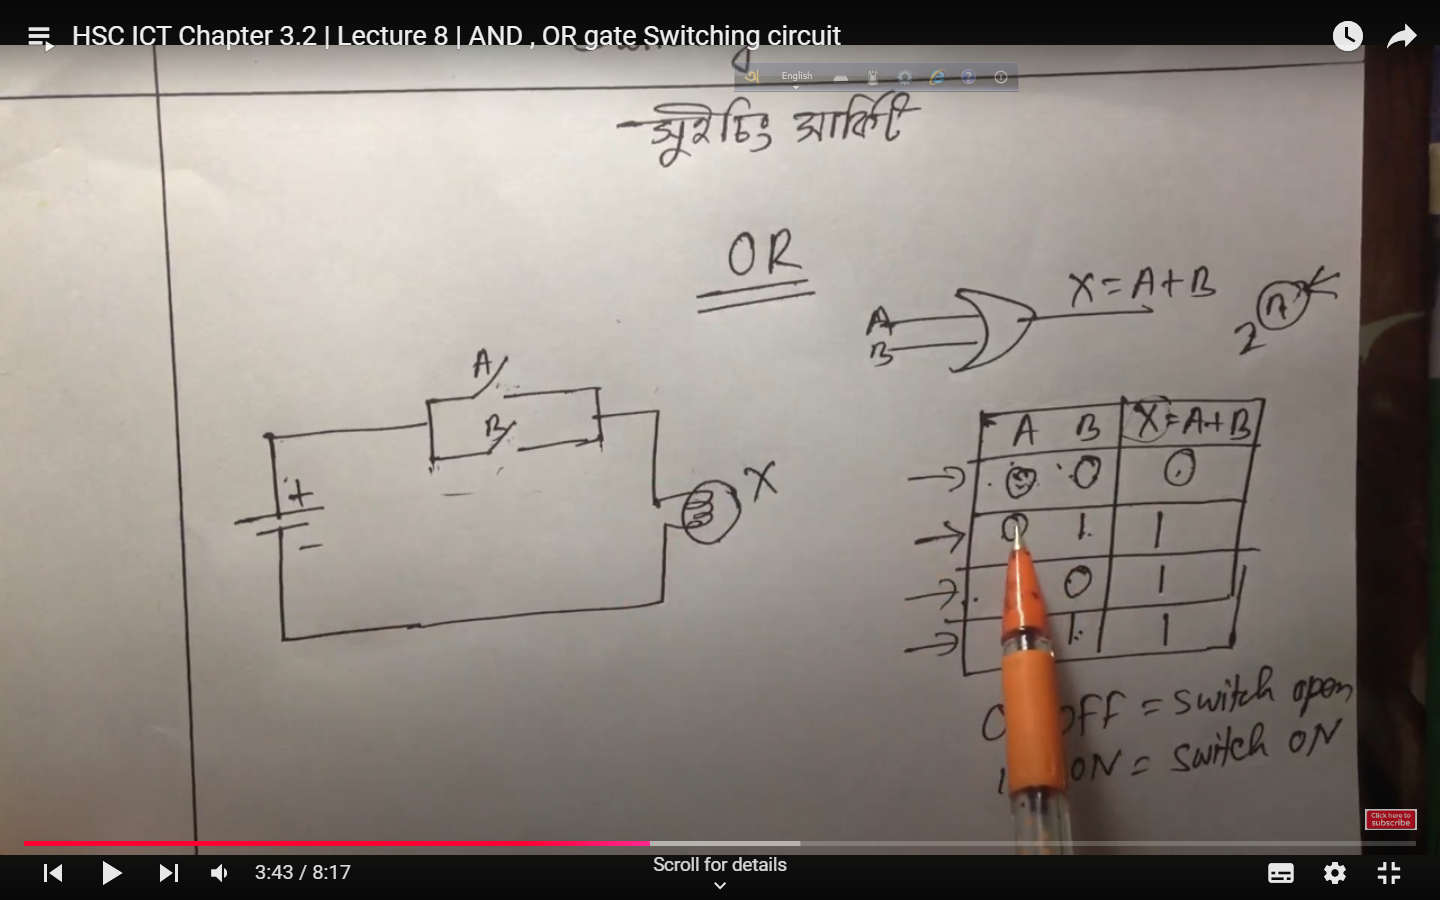 HSC ICT Chapter 3.2 | Lecture 8 | AND , OR gate Switching circuit
English
সুইচিং সার্কিট
OR
X = A + B
A
B
2ⁿ
A
B
+
−
X
A B X = A + B
0 0 0
0 1 1
0 1
1 1
OFF = switch open
1 ON = switch ON
Click here to
subscribe
3:43 / 8:17
Scroll for details